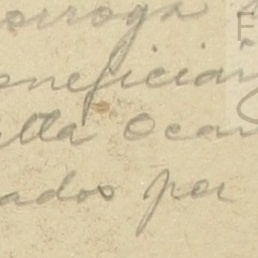 orroga
eneficiari
ella Ocam
ados por